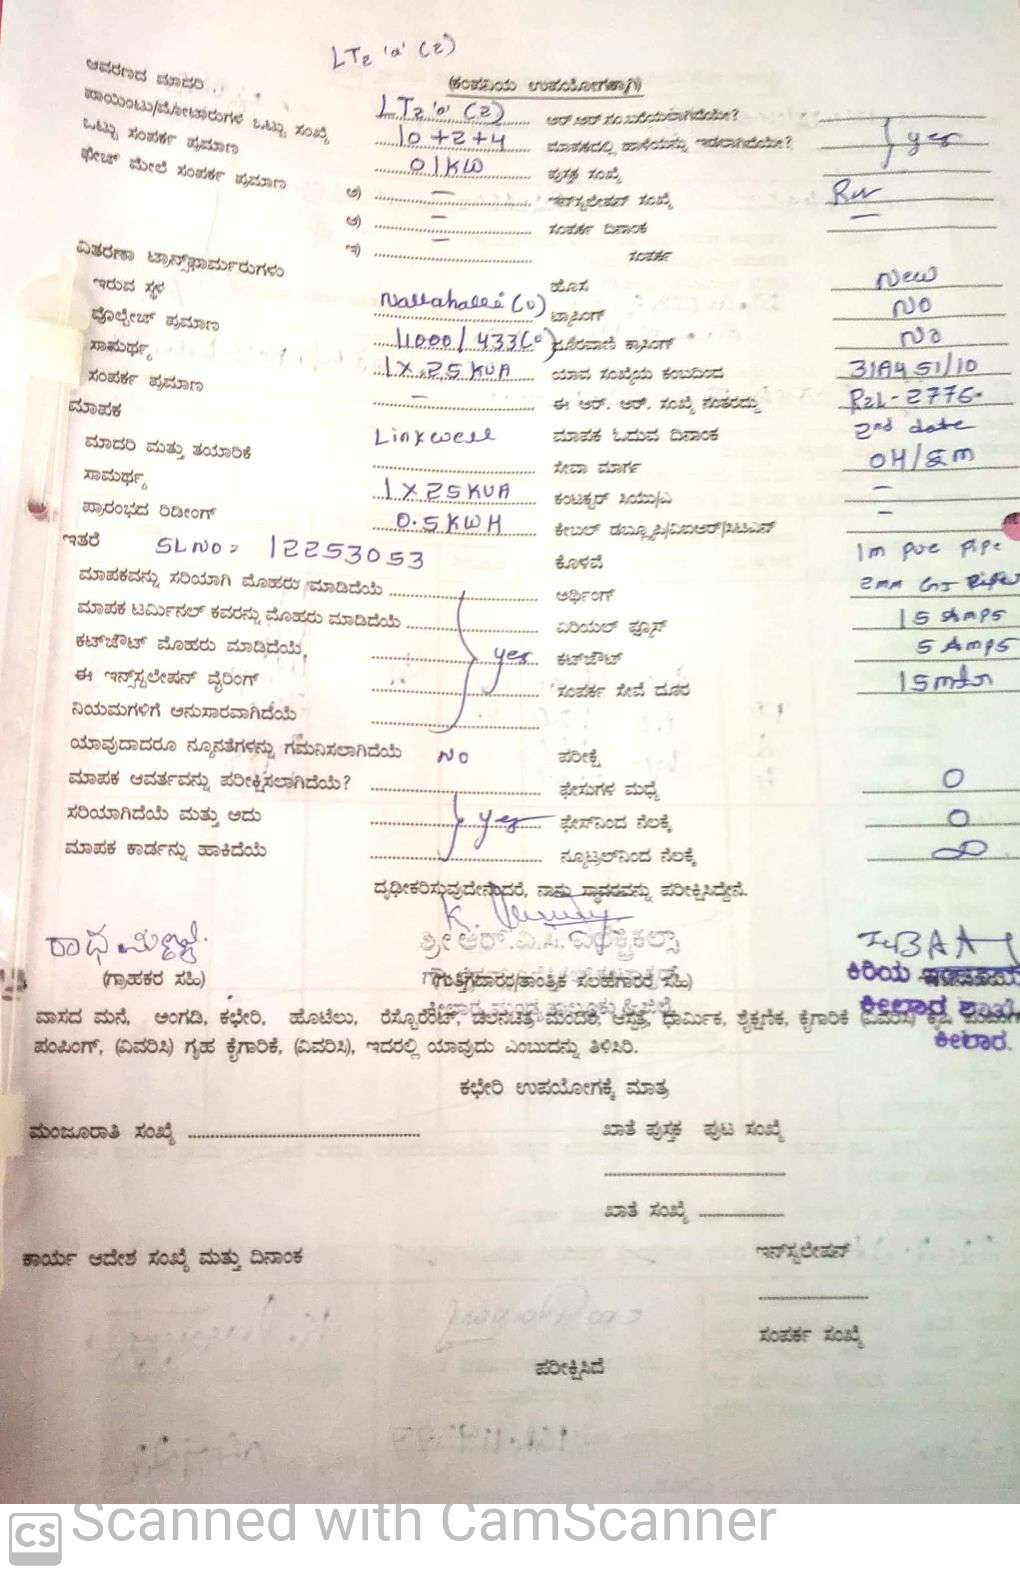 LT2 'a' (2)
(ಕಂಪನಿಯ ಉಪಯೋಗಕ್ಕಾಗಿ)
ಆವರಣದ ಮಾದರಿ LT2 'a' (2) ಆರ್.ಆರ್.ನಂ.ಬರೆಯಲಾಗಿದೆಯೇ?
ಪಾಯಿಂಟು/ಮೋಟಾರುಗಳ ಒಟ್ಟು ಸಂಖ್ಯೆ 10+2+4 ಮಾಪಕದಲ್ಲಿ ಹಾಳೆಯನ್ನು ಇಡಲಾಗಿದೆಯೇ? yes
ಒಟ್ಟು ಸಂಪರ್ಕ ಪ್ರಮಾಣ 01KW ಪುಸ್ತಕ ಸಂಖ್ಯೆ
ಫೇಜ್ ಮೇಲೆ ಸಂಪರ್ಕ ಪ್ರಮಾಣ ಅ) – ಇನ್‌ಸ್ಟಲೇಷನ್ ಸಂಖ್ಯೆ
ಆ) – ಸಂಪರ್ಕ ದಿನಾಂಕ –
ಇ) – ಸಂಪರ್ಕ
ವಿತರಣಾ ಟ್ರಾನ್ಸ್‌ಫಾರ್ಮರುಗಳು
ಇರುವ ಸ್ಥಳ ಹೊಸ New
ವೊಲ್ಟೇಜ್ ಪ್ರಮಾಣ 11000/433 ಟ್ರಾಸಿಂಗ್ NO
ಸಾಮರ್ಥ್ಯ 1X25 KVA ದೂರವಾಣಿ ಕ್ರಾಸಿಂಗ್ NO
ಸಂಪರ್ಕ ಪ್ರಮಾಣ – ಯಾವ ಸಂಖ್ಯೆಯ ಕಂಬದಿಂದ
ಮಾಪಕ ಈ ಆರ್. ಆರ್. ಸಂಖ್ಯೆ ನಂತರದ್ದು
ಮಾದರಿ ಮತ್ತು ತಯಾರಿಕೆ Linkwell ಮಾಪಕ ಓದುವ ದಿನಾಂಕ 2nd date
ಸೇವಾ ಮಾರ್ಗ
ಸಾಮರ್ಥ್ಯ 1X25KVA ಕಂಟಕ್ಟರ್ ಸಿಯು/ಎ –
ಪ್ರಾರಂಭದ ರಿಡೀಂಗ್ 0.5KWH ಕೇಬಲ್ –
ಇತರೆ SLNO: 12253053 ಕೊಳವೆ 1m pvc pipe
ಮಾಪಕವನ್ನು ಸರಿಯಾಗಿ ಮೊಹರು ಮಾಡಿದೆಯೆ ಅರ್ಥಿಂಗ್ 2mm
ಮಾಪಕ ಟರ್ಮಿನಲ್ ಕವರನ್ನು ಮೊಹರು ಮಾಡಿದೆಯೆ ಏರಿಯಲ್ ಫ್ಯೂಸ್ 15 Amps
ಕಟ್‌ಔಟ್ ಮೊಹರು ಮಾಡಿದೆಯೆ, yes ಕಟ್‌ಔಟ್ 5 Amps
ಈ ಇನ್ಸ್‌ಟಲೇಷನ್ ವೈರಿಂಗ್ ಸಂಪರ್ಕ ಸೇವೆ ದೂರ
ನಿಯಮಗಳಿಗೆ ಅನುಸಾರವಾಗಿದೆಯೆ
ಯಾವುದಾದರೂ ನ್ಯೂನತೆಗಳನ್ನು ಗಮನಿಸಲಾಗಿದೆಯೆ NO ಪರೀಕ್ಷೆ
ಮಾಪಕ ಆವರ್ತವನ್ನು ಪರೀಕ್ಷಿಸಲಾಗಿದೆಯೆ? ಫೇಸುಗಳ ಮಧ್ಯೆ 0
ಸರಿಯಾಗಿದೆಯೆ ಮತ್ತು ಅದು yes ಫೇಸ್‌ನಿಂದ ನೆಲಕ್ಕೆ 0
ಮಾಪಕ ಕಾರ್ಡನ್ನು ಹಾಕಿದೆಯೆ ನ್ಯೂಟ್ರಲ್‌ನಿಂದ ನೆಲಕ್ಕೆ ∞
ದೃಢೀಕರಿಸುವುದೇನೆಂದರೆ, ನಾನು ಸ್ಥಾವರವನ್ನು ಪರೀಕ್ಷಿಸಿದ್ದೇನೆ.
ಶ್ರೀ ಆರ್.ವಿ.ಸಿ. ಎಲೆಕ್ಟ್ರಿಕಲ್ಸ್
(ಗ್ರಾಹಕರ ಸಹಿ) (ಗುತ್ತಿಗೆದಾರರ/ತಾಂತ್ರಿಕ ಸಲಹೆಗಾರರ ಸಹಿ) ಕಿರಿಯ
ಕೀಲಾರ ಶಾಖೆ
ವಾಸದ ಮನೆ, ಅಂಗಡಿ, ಕಛೇರಿ, ಹೊಟೆಲು, ರೆಸ್ಟೊರೆಂಟ್, ಚಲನಚಿತ್ರ ಮಂದಿರ, ಆಸ್ಪತ್ರೆ, ಧಾರ್ಮಿಕ, ಶೈಕ್ಷಣಿಕ, ಕೈಗಾರಿಕೆ (ವಿವರಿಸಿ)
ಕೀಲಾರ.
ಪಂಪಿಂಗ್, (ವಿವರಿಸಿ) ಗೃಹ ಕೈಗಾರಿಕೆ, (ವಿವರಿಸಿ), ಇದರಲ್ಲಿ ಯಾವುದು ಎಂಬುದನ್ನು ತಿಳಿಸಿರಿ.
ಕಛೇರಿ ಉಪಯೋಗಕ್ಕೆ ಮಾತ್ರ
ಮಂಜೂರಾತಿ ಸಂಖ್ಯೆ ಖಾತೆ ಪುಸ್ತಕ ಪುಟ ಸಂಖ್ಯೆ
ಖಾತೆ ಸಂಖ್ಯೆ
ಕಾರ್ಯ ಆದೇಶ ಸಂಖ್ಯೆ ಮತ್ತು ದಿನಾಂಕ ಇನ್‌ಸ್ಟಲೇಷನ್
ಸಂಪರ್ಕ ಸಂಖ್ಯೆ
ಪರೀಕ್ಷಿಸಿದೆ
CS Scanned with CamScanner